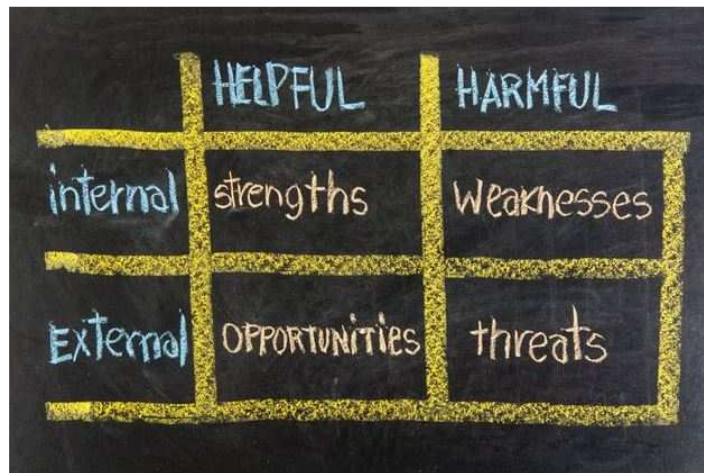 HELPFUL HARMFUL
internal strengths Weaknesses
External OPPORTUNiTiES threats